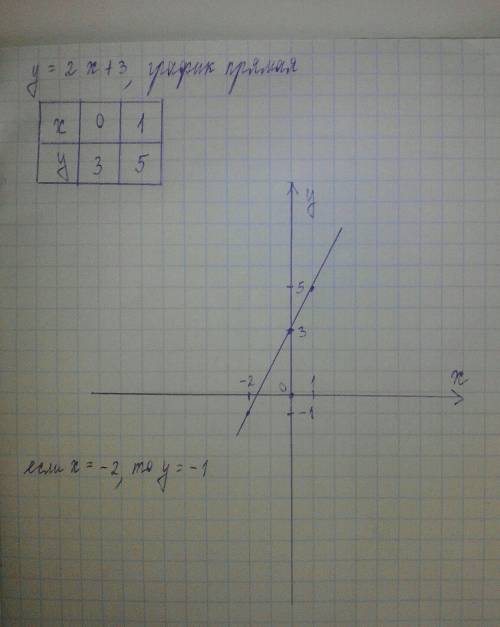 y = 2x+3, график прямая
x 0 1
y 3 5
y
5
3
-2 0 1 x
-1
если x = -2, то y = -1